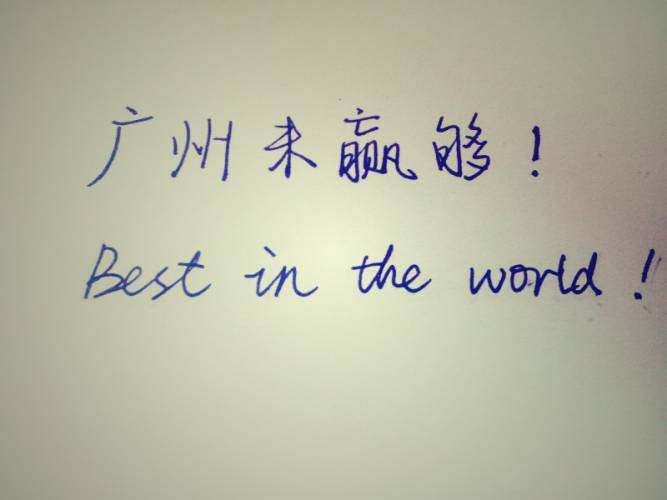 广州未赢够！
Best in the world！